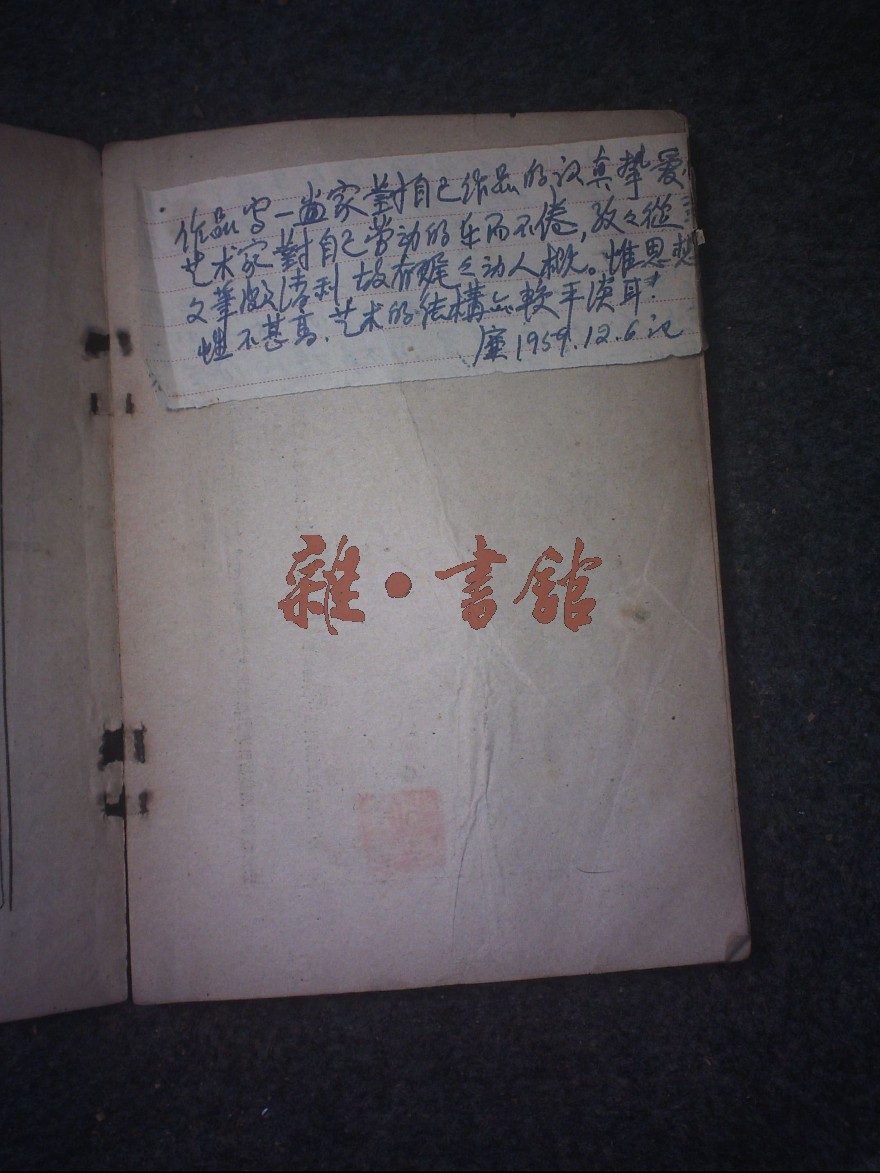 作品写一画家對自己作品的认真摯爱
艺术家對自己劳动的乐而不倦,孜々從
文筆頗清利 故有娓々动人概。惟思想
性不甚高,艺术的结構亦较平淡耳!
1959.12.6记
雜·書館